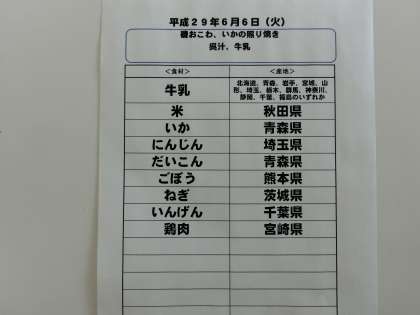 平成29年6月6日(火)
磯おこわ、いかの照り焼き
呉汁、牛乳
＜食材＞ ＜産地＞
牛乳 北海道、青森、岩手、宮城、山
形、埼玉、栃木、群馬、神奈川、
静岡、千葉、福島のいずれか
米 秋田県
いか 青森県
にんじん 埼玉県
だいこん 青森県
ごぼう 熊本県
ねぎ 茨城県
いんげん 千葉県
鶏肉 宮崎県